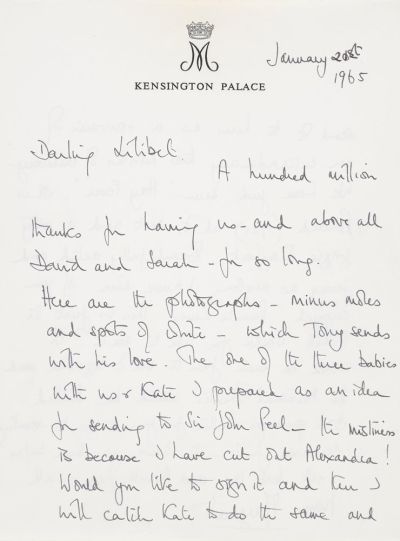 M
KENSINGTON PALACE
January
1965
Darling Lilibet.
A hundred million
thanks for having us - and above all
David and Sarah - for so long.
Here are the photographs - minus moles
and spots of white - which Tony sends
with his love. The one of the three babies
with us & Kate I prepared as an idea
for sending to Sir John Peel - the mistiness
is because I have cut out Alexandra!
Would you like to sign it and then I
will catch Kate to do the same and